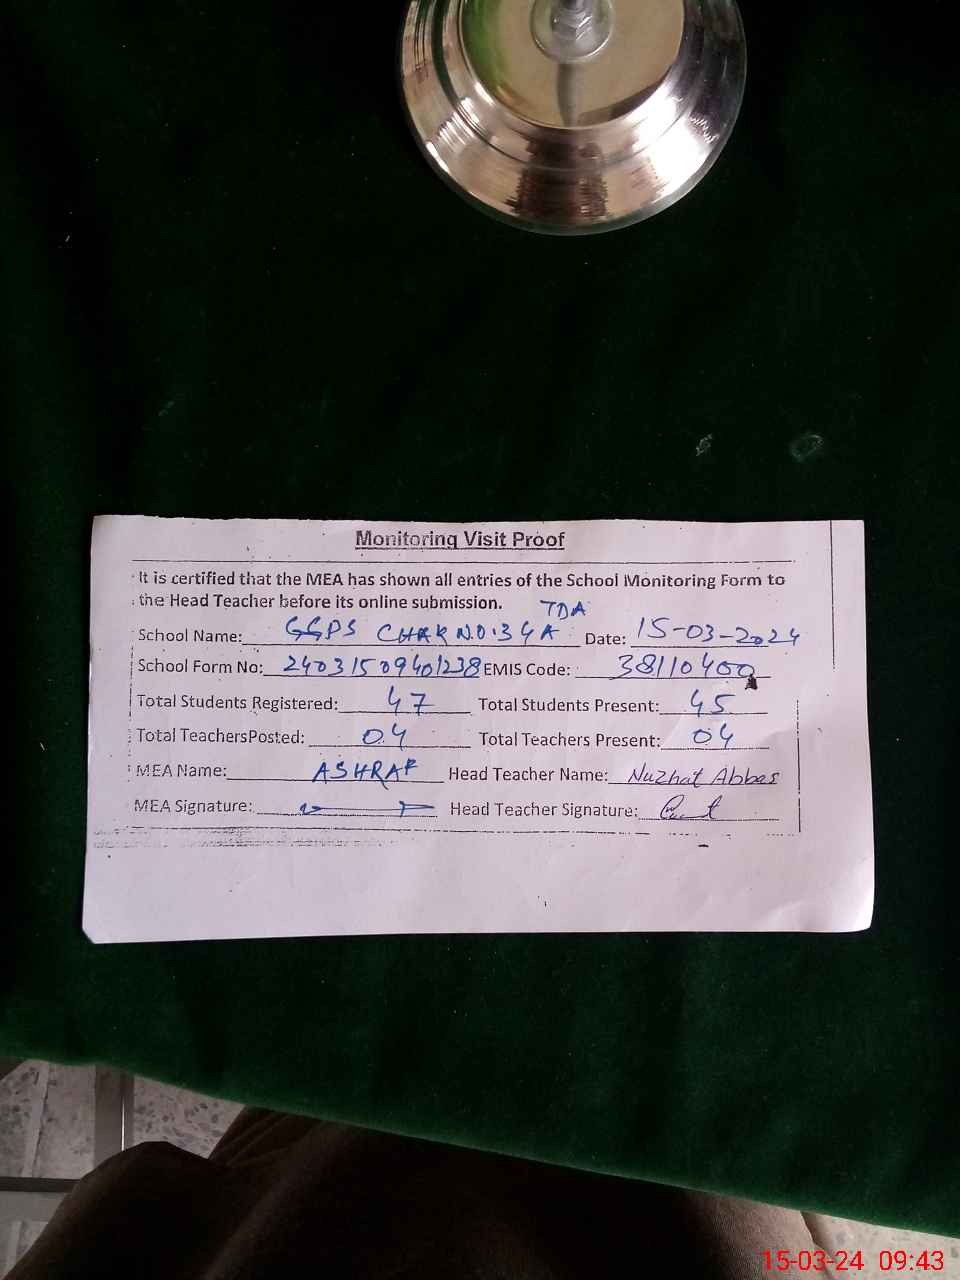 Monitoring Visit Proof
It is certified that the MEA has shown all entries of the School Monitoring Form to
the Head Teacher before its online submission.
TDA
School Name: GGPS CHAK NO.34A Date: 15-03-2024
School Form No: 24031509401238 EMIS Code: 38110400
Total Students Registered: 47 Total Students Present: 45
Total TeachersPosted: 04 Total Teachers Present: 04
MEA Name: ASHRAF Head Teacher Name: Nuzhat Abbas
MEA Signature: Head Teacher Signature:
15-03-24 09:43